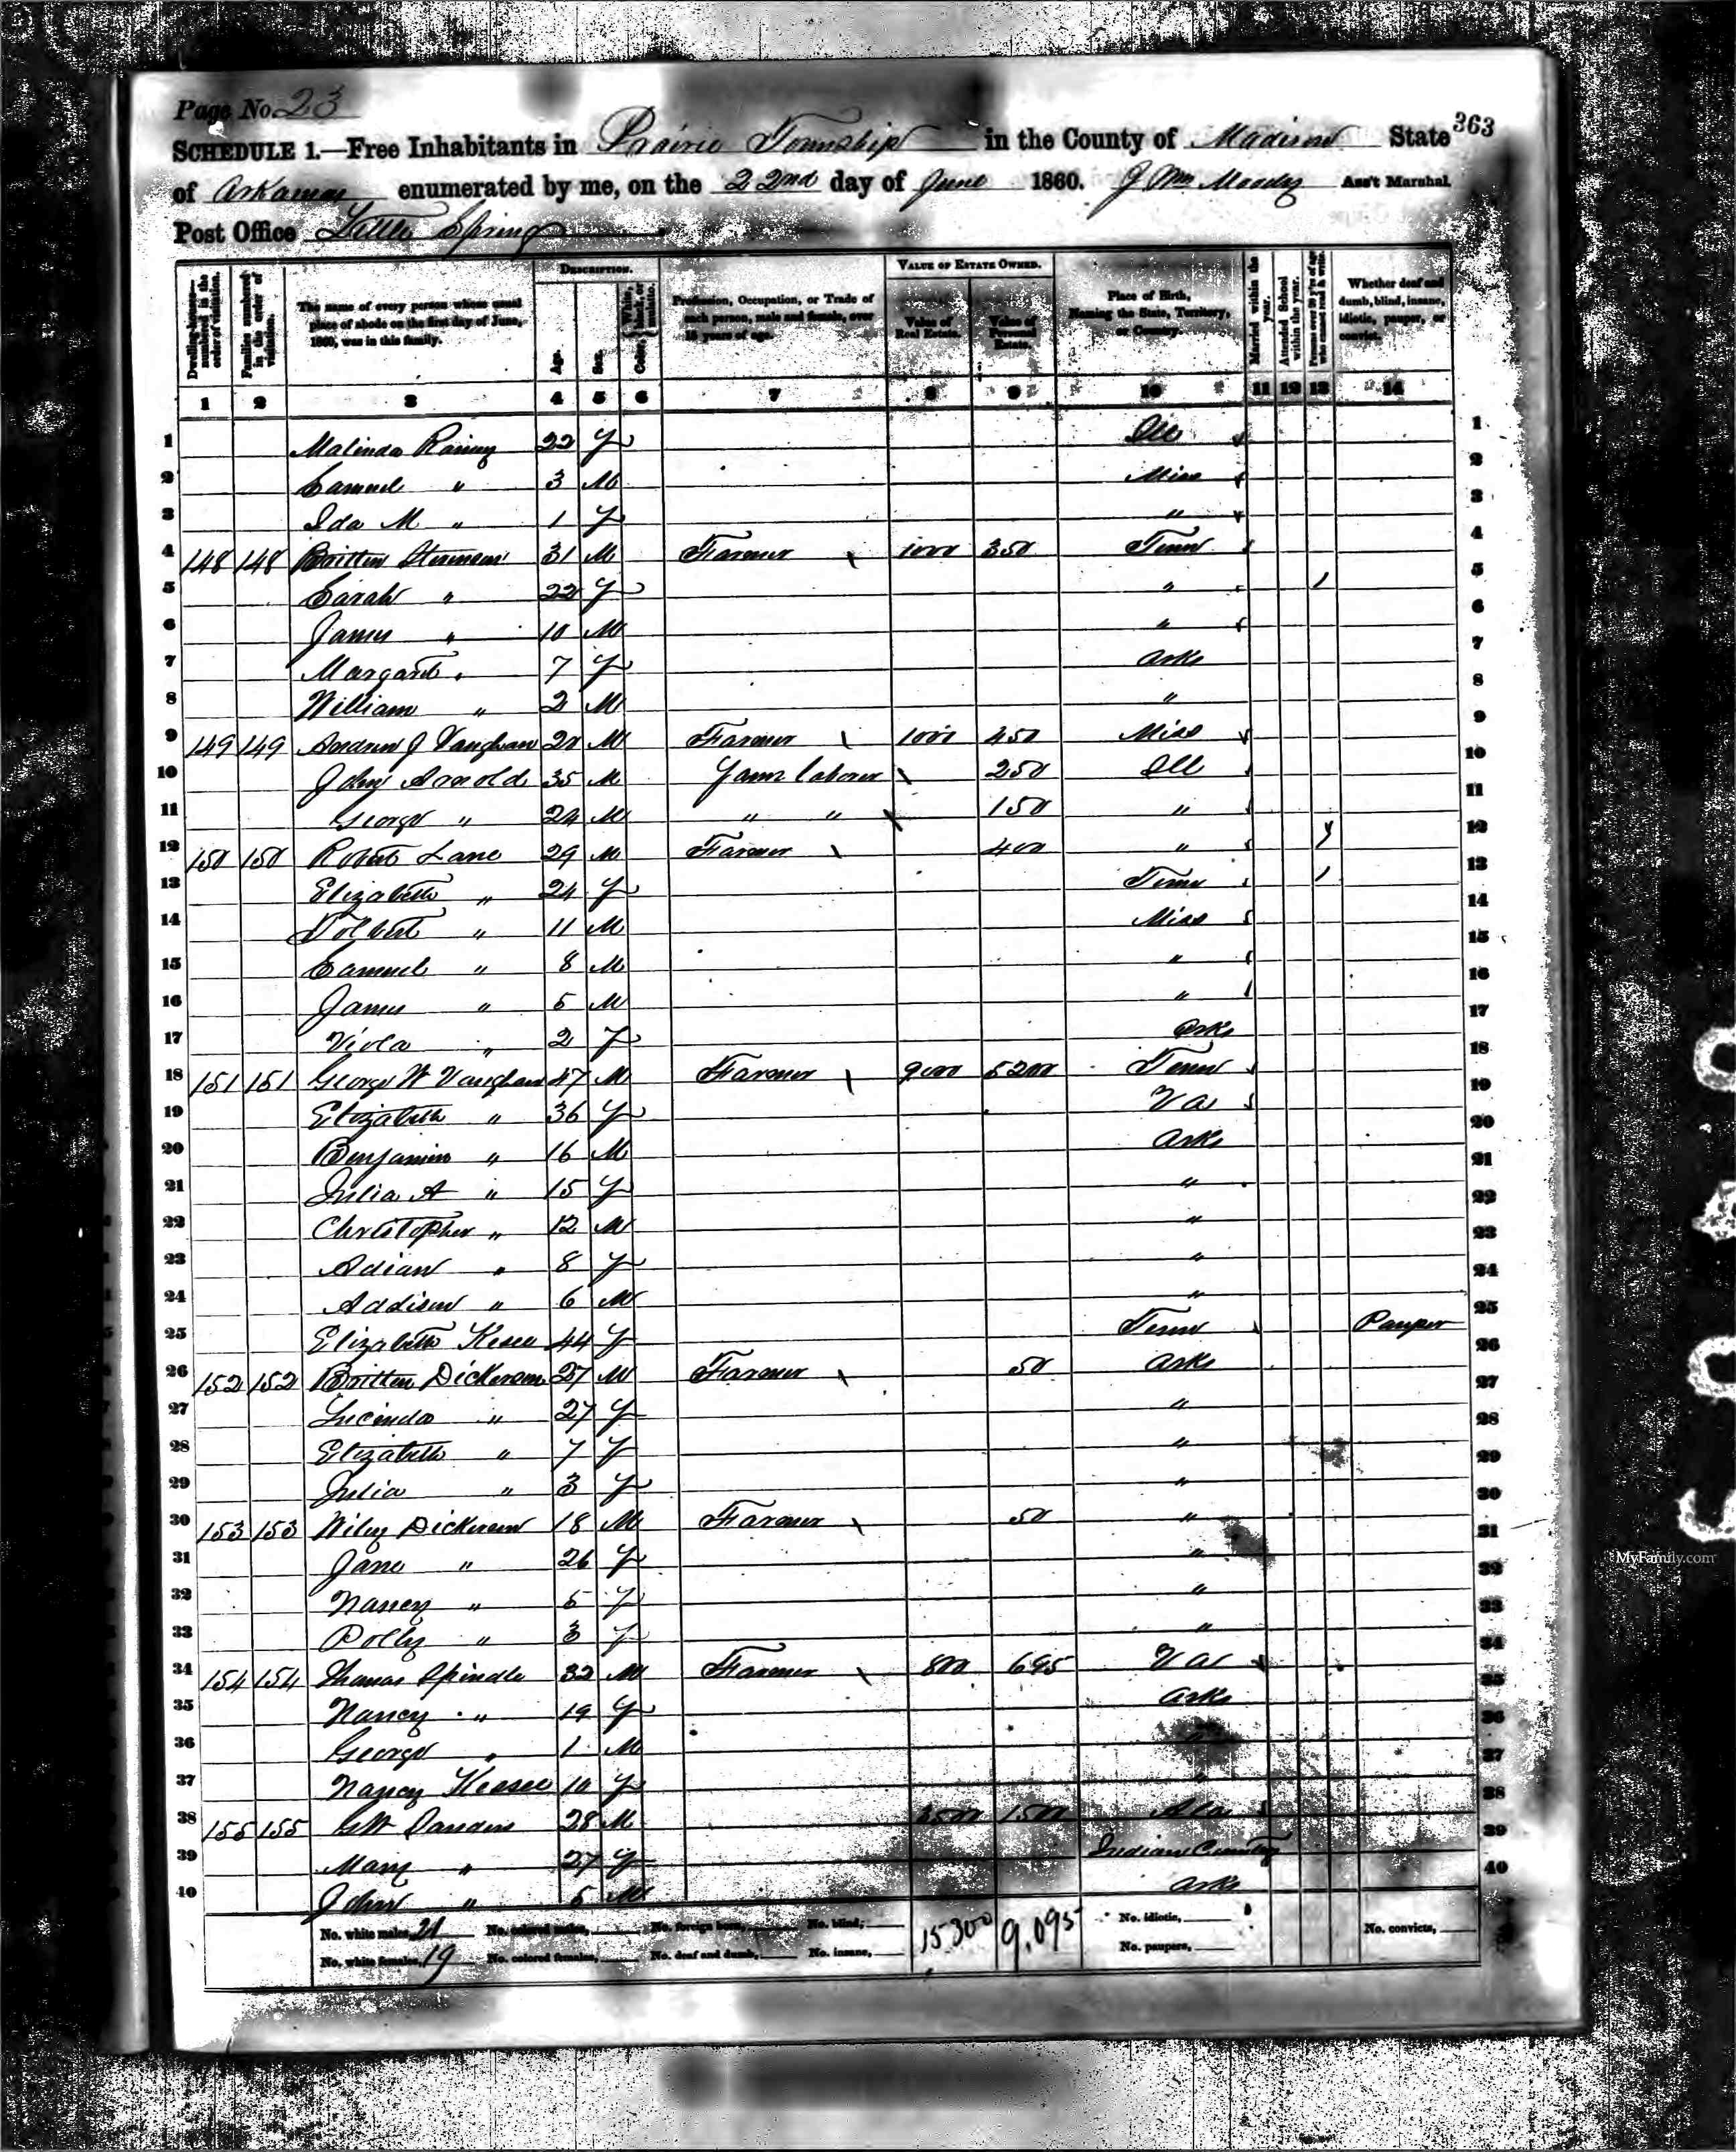 Page No. 23
363
SCHEDULE 1.—Free Inhabitants in Prairie Township in the County of Madison State
of Arkansas enumerated by me, on the 22nd day of June 1860. J Wm Moody Ass't Marshal
Post Office Little Spring
Dwelling-houses—numbered in the order of visitation.
Families numbered in the order of visitation.
The name of every person whose usual place of abode on the first day of June, 1860, was in this family.
DESCRIPTION.
Age.
Sex.
Color, { White, black, or mulatto.
Profession, Occupation, or Trade of each person, male and female, over 15 years of age.
VALUE OF ESTATE OWNED.
Value of Real Estate.
Value of Personal Estate.
Place of Birth, Naming the State, Territory, or Country.
Married within the year.
Attended School within the year.
Persons over 20 y'rs of age who cannot read & write.
Whether deaf and dumb, blind, insane, idiotic, pauper, or convict.
1 2 3 4 5 6 7 8 9 10 11 12 13 14
1 Malinda Rainey 22 F Ill 1
2 Samuel " 3 M Miss 2
3 Ida M " 1 F " 3
4 148 148 Britten Stevenson 31 M Farmer 1000 350 Tenn 4
5 Sarah " 22 F " / 5
6 James " 10 M " 6
7 Margaret " 7 F Arks 7
8 William " 2 M " 8
9 149 149 Andrew J Vaughan 28 M Farmer 1000 450 Miss 9
10 John Arnold 35 M Farm laborer 250 Ill 10
11 George " 24 M " " 150 " 11
12 150 150 Robert Lane 29 M Farmer 400 " / 12
13 Elizabeth " 24 F Tenn / 13
14 Tolbert " 11 M Miss 14
15 Samuel " 8 M " 15
16 James " 5 M " 16
17 Viola " 2 F Arks 17
18 151 151 George W Vaughan 47 M Farmer 9000 5200 Tenn 18
19 Elizabeth " 36 F Va 19
20 Benjamin " 16 M Arks 20
21 Julia A " 15 F " 21
22 Christopher " 12 M " 22
23 Adian " 8 F " 23
24 Addison " 6 M " 24
25 Elizabeth Kesee 44 F Tenn Pauper 25
26 152 152 Britten Dickerson 27 M Farmer 50 Arks 26
27 Lucinda " 27 F " 27
28 Elizabeth " 7 F " 28
29 Julia " 3 F " 29
30 153 153 Wiley Dickerson 18 M Farmer 50 " 30
31 Jane " 26 F " 31
32 Nancy " 5 F " 32
33 Polly " 3 F " 33
34 154 154 Thomas Spindle 32 M Farmer 800 695 Va 34
35 Nancy " 19 F Arks 35
36 George " 1 M " 36
37 Nancy Keesee 10 F " 37
38 155 155 G W 28 M 3500 1500 Ala 38
39 Mary " 27 F Indian Country 39
40 John " 5 M Arks 40
No. white males, 21 No. colored males, No. foreign born, No. blind, 15300 9.095 No. idiotic, No. convicts,
No. white females, 19 No. colored females, No. deaf and dumb, No. insane, No. paupers,
MyFamily.com